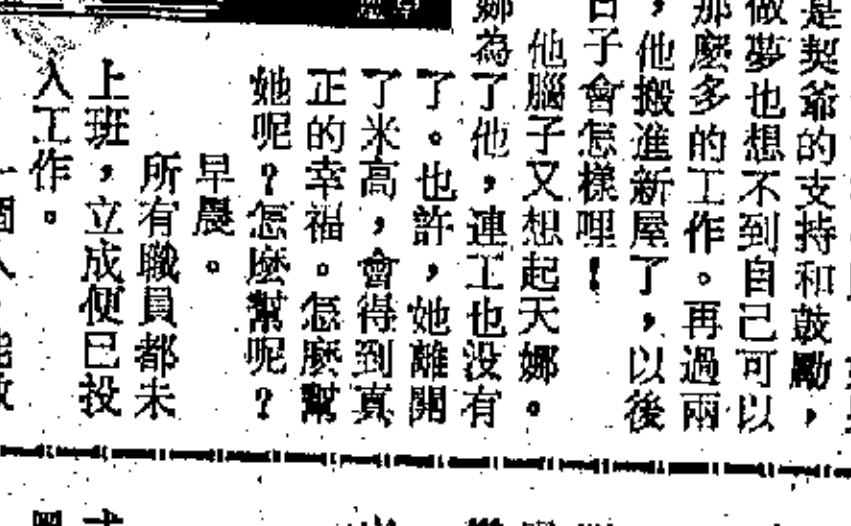 是契爺的支持和鼓勵，
做夢也想不到自己可以
那麼多的工作。再過兩
，他搬進新屋了，以後
日子會怎樣哩！
他腦子又想起天娜。
娜為了他，連工也沒有
了。也許，她離開
了米高，會得到真
正的幸福。怎麼幫
她呢？怎麼幫呢？
早晨。
所有職員都未
上班，立成便已投
入工作。